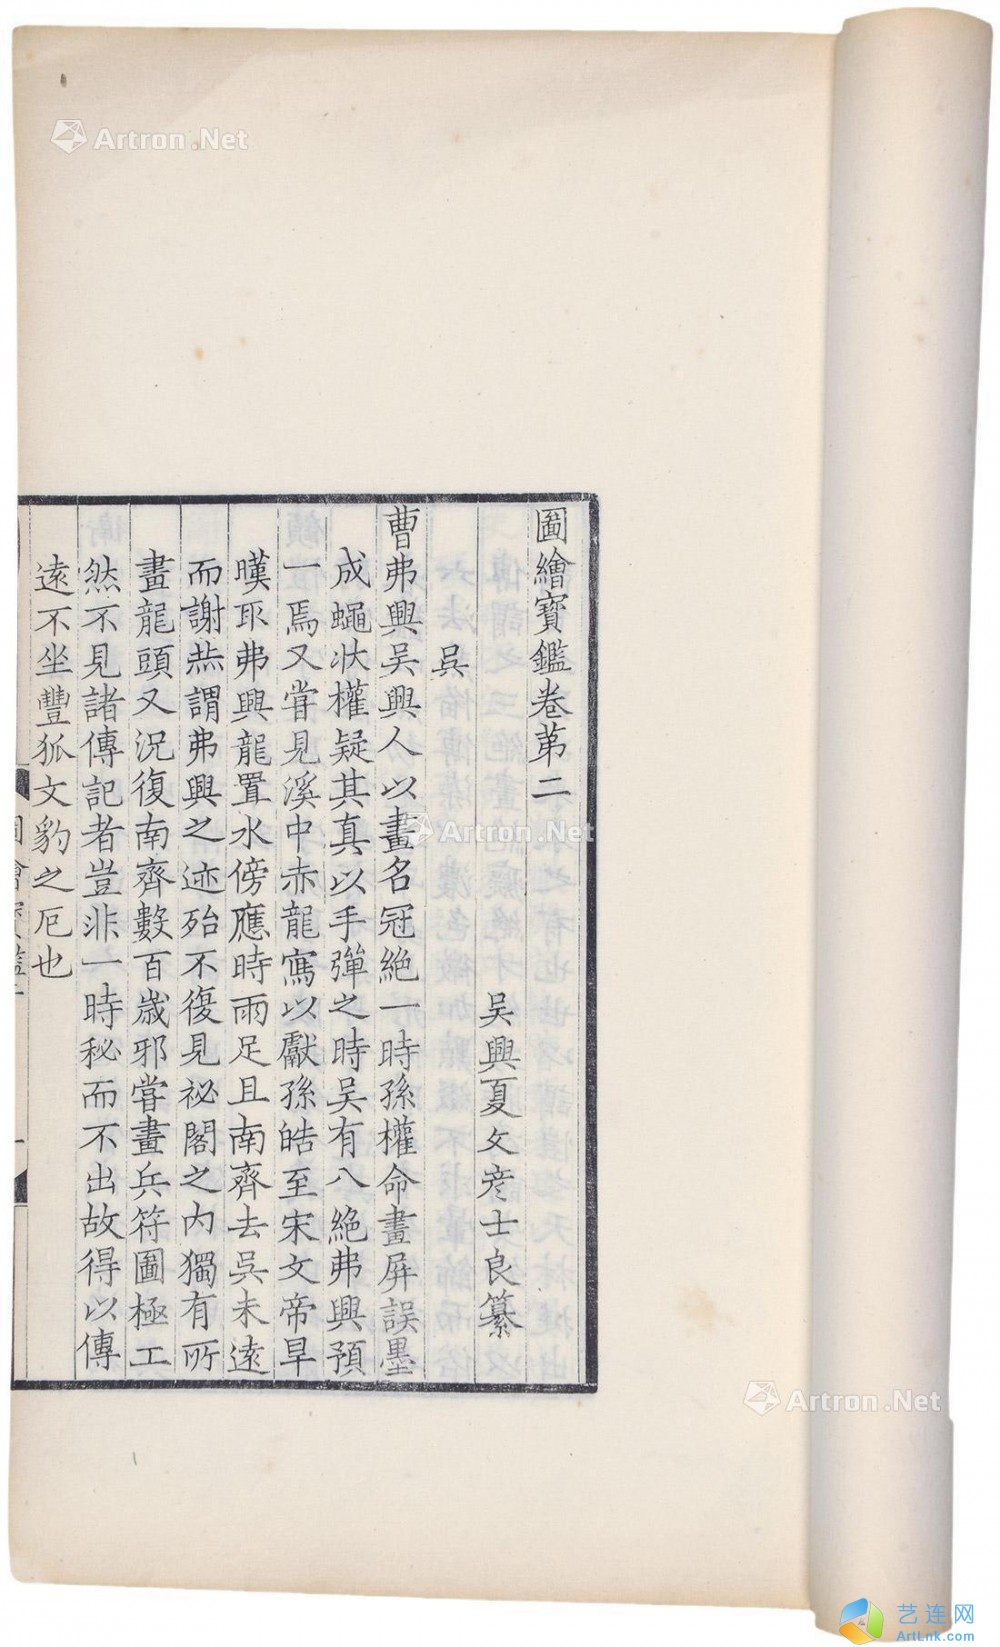 圖繪寶鑑卷第二
吳興夏文彦士良纂
吳
曹弗興吳興人以畫名冠絶一時孫權命畫屏誤墨
成蠅状權疑其真以手彈之時吴有八絶弗興預
一焉又甞見溪中赤龍寫以獻孫皓至宋文帝旱
暵取弗興龍置水傍應時雨足且南齊去吳未遠
而謝𠔏謂弗興之迹殆不復見祕閣之内獨有所
畫龍頭又況復南齊數百歳邪甞畫兵符圖極工
然不見諸傳記者豈非一時秘而不出故得以傳
逺不坐豐狐文豹之厄也
圖繪寶鑑二
一
Artron.Net
Artron.Net
Artron.Net
艺连网
ArtLnk.com